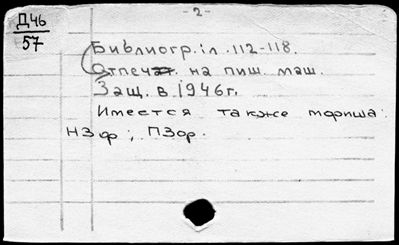 - 2 -
Д46
57
Библиогр.: л. 112-118.
Отпечат. на пиш. маш.
Защ. в 1946 г.
Имеется также мфиша:
НЗф; ПЗор.